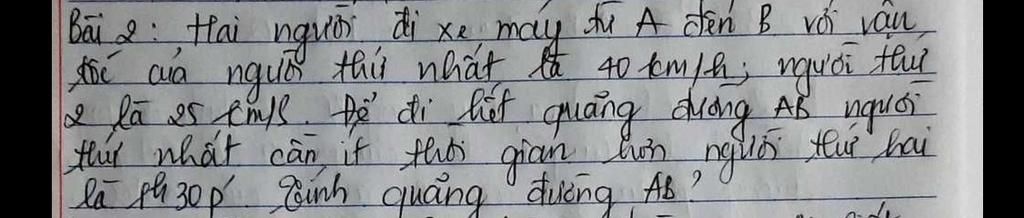 Bài 2: Hai người đi xe máy từ A đến B với vận
tốc của người thứ nhất là 40 km/h; người thứ
2 là 25 km/h. Để đi hết quãng đường AB người
thứ nhất cần ít thời gian hơn người thứ hai
là 1h30p'. Tính quãng đường AB?